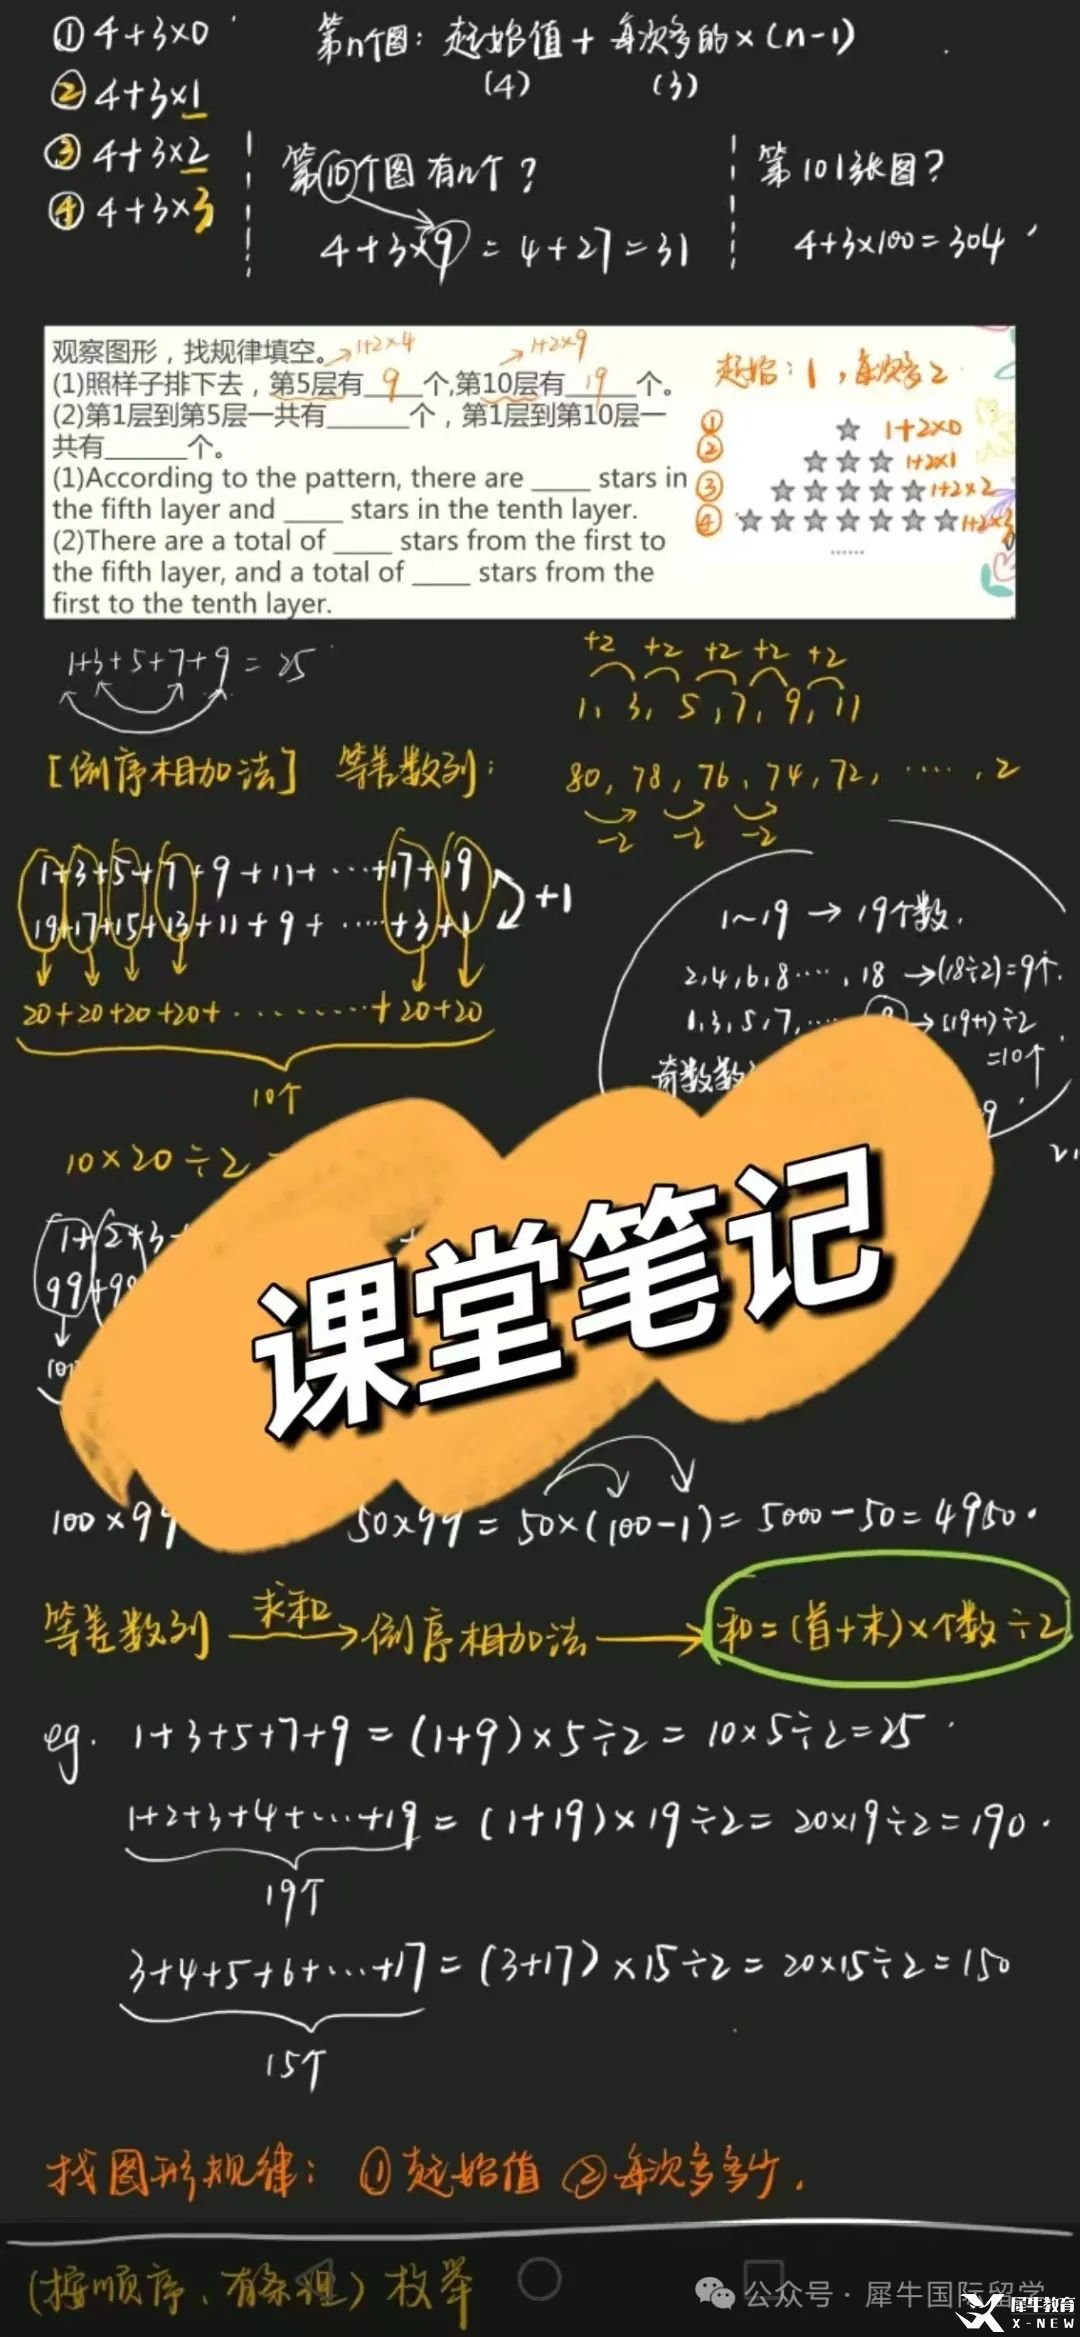 ①4+3×0
第n个图：起始值+每次多的×(n-1)
(4) (3)
②4+3×1
③4+3×2
④4+3×3
第⑩个图有n个？
4+3×9=4+27=31
第101张图？
4+3×100=304
观察图形，找规律填空。
1+2×4 1+2×9
(1)照样子排下去，第5层有 9 个,第10层有 19 个。
(2)第1层到第5层一共有______个，第1层到第10层一
共有______个。
(1)According to the pattern, there are ____ stars in
the fifth layer and ____ stars in the tenth layer.
(2)There are a total of ____ stars from the first to
the fifth layer, and a total of ____ stars from the
first to the tenth layer.
起始：1，每次多2
① 1+2×0
② 1+2×1
③ 1+2×2
④ 1+2×3
......
1+3+5+7+9=25
+2 +2 +2 +2 +2
1, 3, 5, 7, 9, 11
[倒序相加法] 等差数列：
80, 78, 76, 74, 72, ……, 2
-2 -2 -2
1+3+5+7+9+11+…+17+19
+1
19+17+15+13+11+9+……+3+1
20+20+20+20+………+20+20
10个
1~19→19个数.
2,4,6,8……,18→(18÷2)=9个.
1,3,5,7,……→(19+1)÷2
=10个
奇数数
9
10×20÷2
1+2+3
99+98
课堂笔记
100×99
50×99=50×(100-1)=5000-50=4950.
等差数列 求和→倒序相加法→和=(首+末)×个数÷2
eg. 1+3+5+7+9=(1+9)×5÷2=10×5÷2=25
1+2+3+4+…+19=(1+19)×19÷2=20×19÷2=190.
19个
3+4+5+6+…+17=(3+17)×15÷2=20×15÷2=150
15个
找图形规律：①起始值 ②每次多多少.
(按顺序、有条理)枚举
公众号·犀牛国际留学
犀牛教育
X-NEW